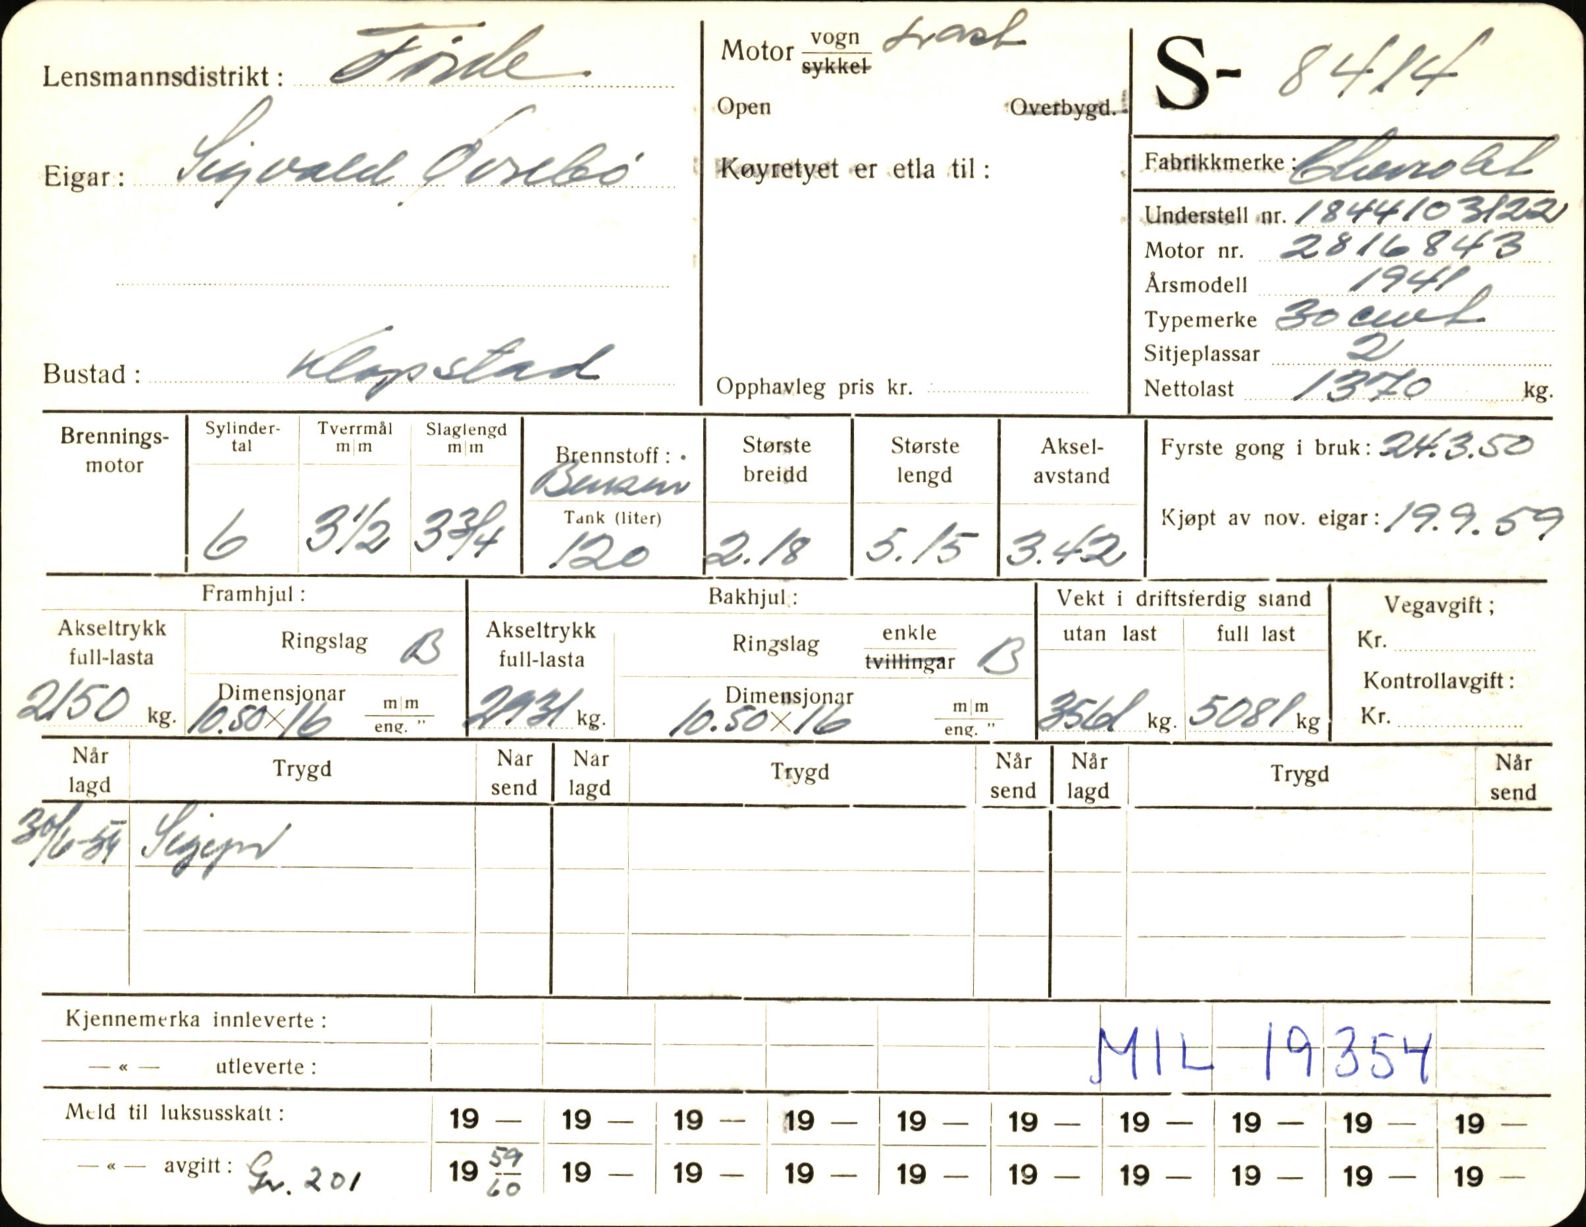 Lensmannsdistrikt: Førde
Eigar: Sigvald Øvrebø
Bustad: Klopstad
Motor vogn sykkel
Open Overbygd.
Køyretyet er etla til:
Opphavleg pris kr.
S- 8414
Fabrikkmerke: Chevrolet
Understell nr. 1844103122
Motor nr. 2816843
Årsmodell 1941
Typemerke 30 cwt
Sitjeplassar 2
Nettolast 1370 kg.
Brennings-motor
Sylinder-tal 6
Tverrmål m|m 3 1/2
Slaglengd m|m 3 3/4
Brennstoff: Bensin
Tank (liter) 120
Største breidd 2.18
Største lengd 5.15
Aksel-avstand 3.42
Fyrste gong i bruk: 24.3.50
Kjøpt av nov. eigar: 19.9.59
Framhjul:
Akseltrykk full-lasta 2150 kg.
Ringslag B
Dimensjonar 10.50×16 m|m eng. "
Bakhjul:
Akseltrykk full-lasta 2931 kg.
Ringslag enkle tvillingar B
Dimensjonar 10.50×16 m|m eng. "
Vekt i driftsferdig stand
utan last 3561 kg.
full last 5081 kg
Vegavgift;
Kr.
Kontrollavgift:
Kr.
Når lagd Trygd Når send Når lagd Trygd Når send Når lagd Trygd Når send
Kjennemerka innleverte:
— « — utleverte:
MIL 19354
Meld til luksusskatt: 19 — 19 — 19 — 19 — 19 — 19 — 19 — 19 — 19 — 19 —
— « — avgift: Gr. 201 19 59/60 19 — 19 — 19 — 19 — 19 — 19 — 19 — 19 — 19 —